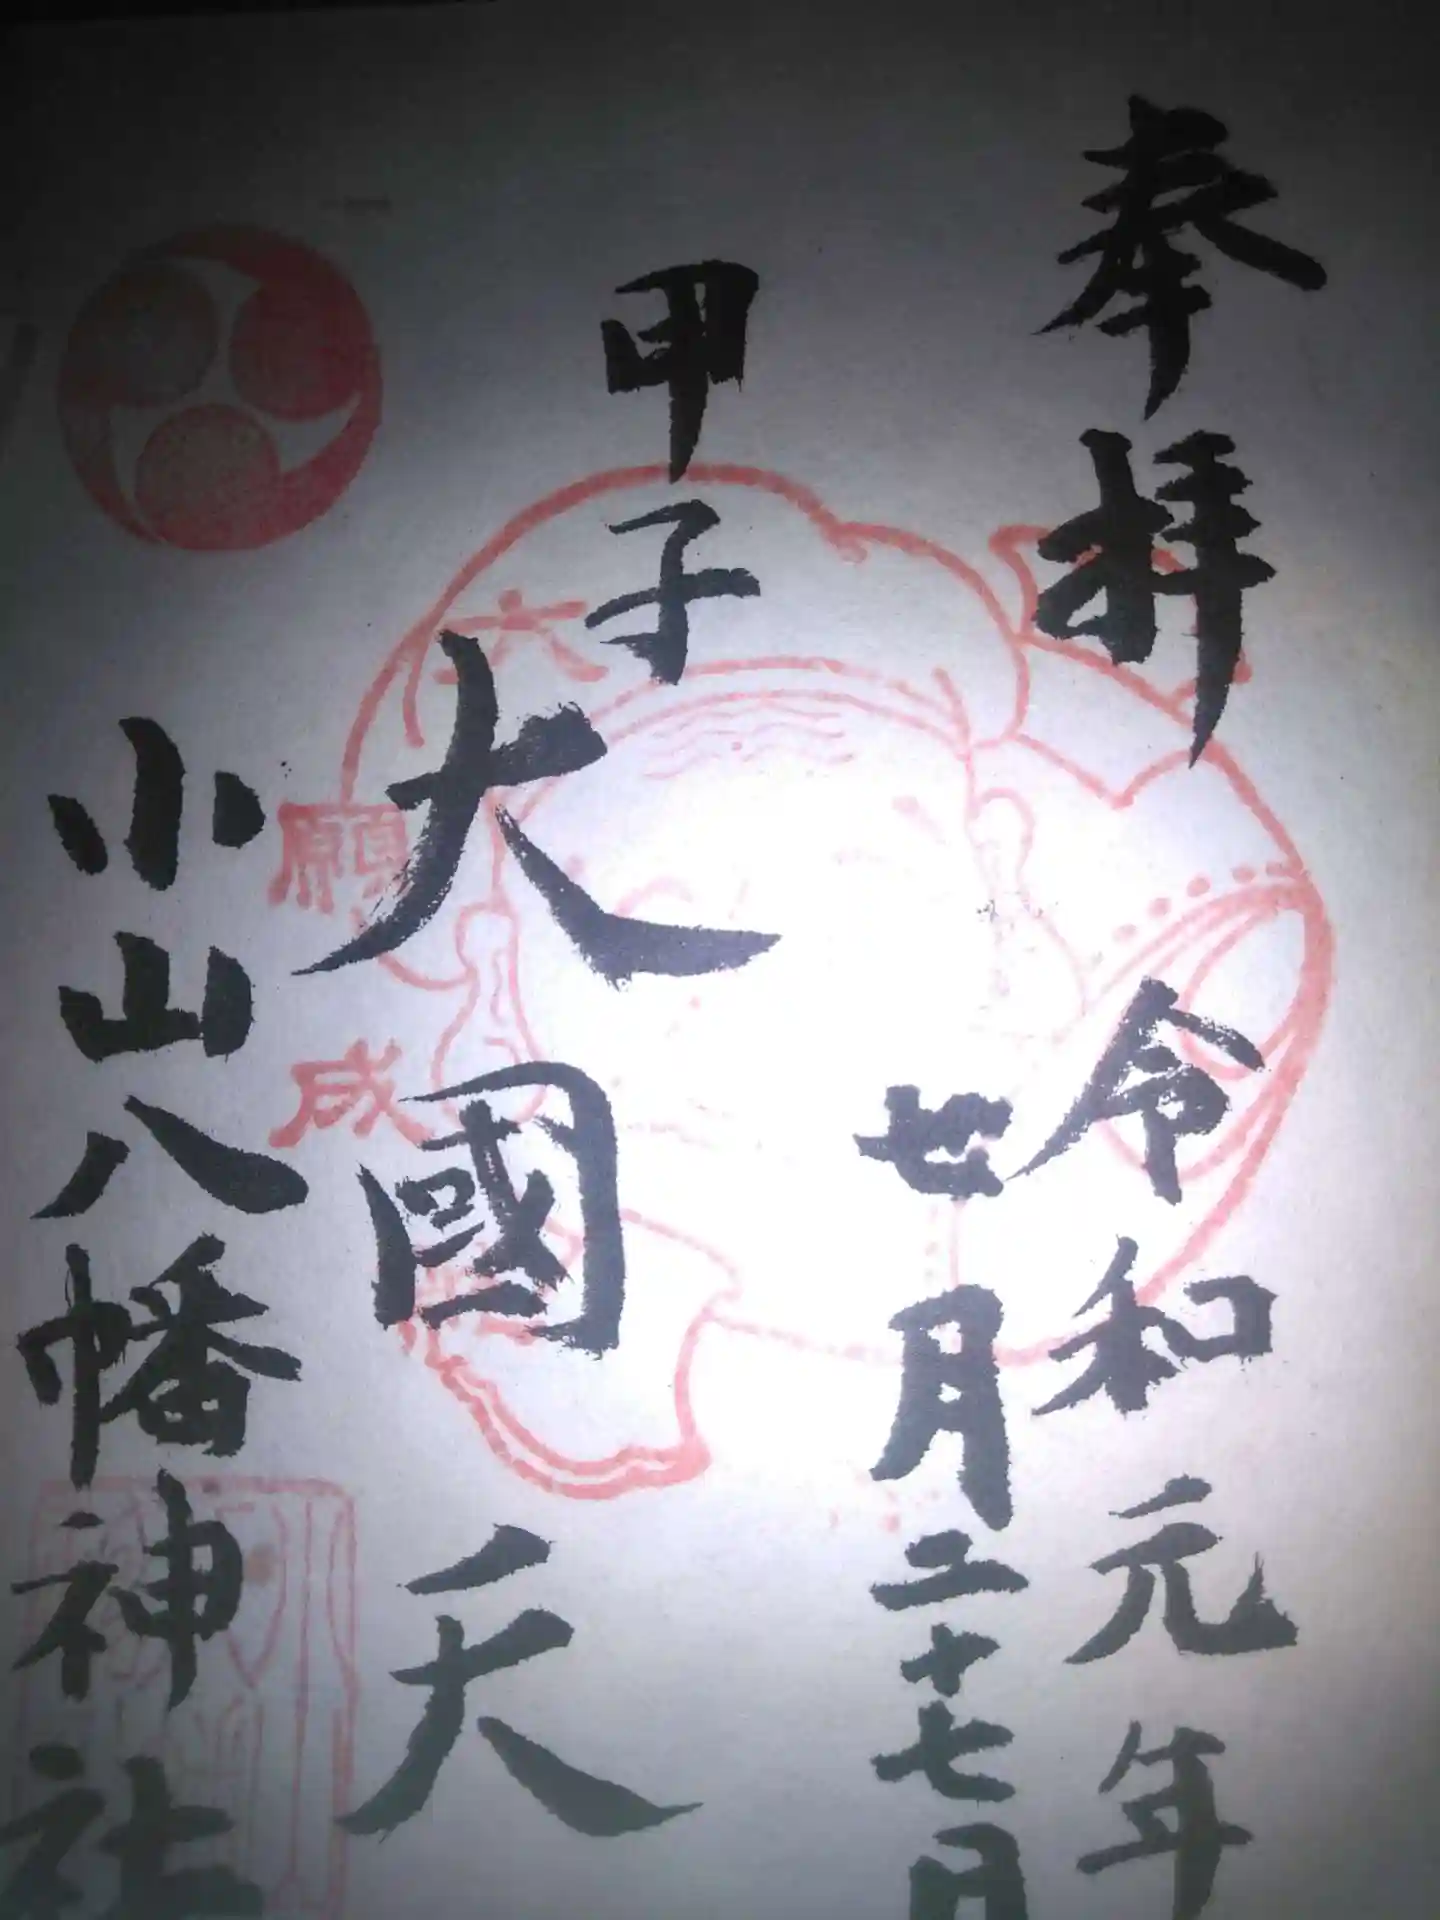 奉拝
令和元年
七月二十七日
甲子
大國天
小山八幡神社
大願成